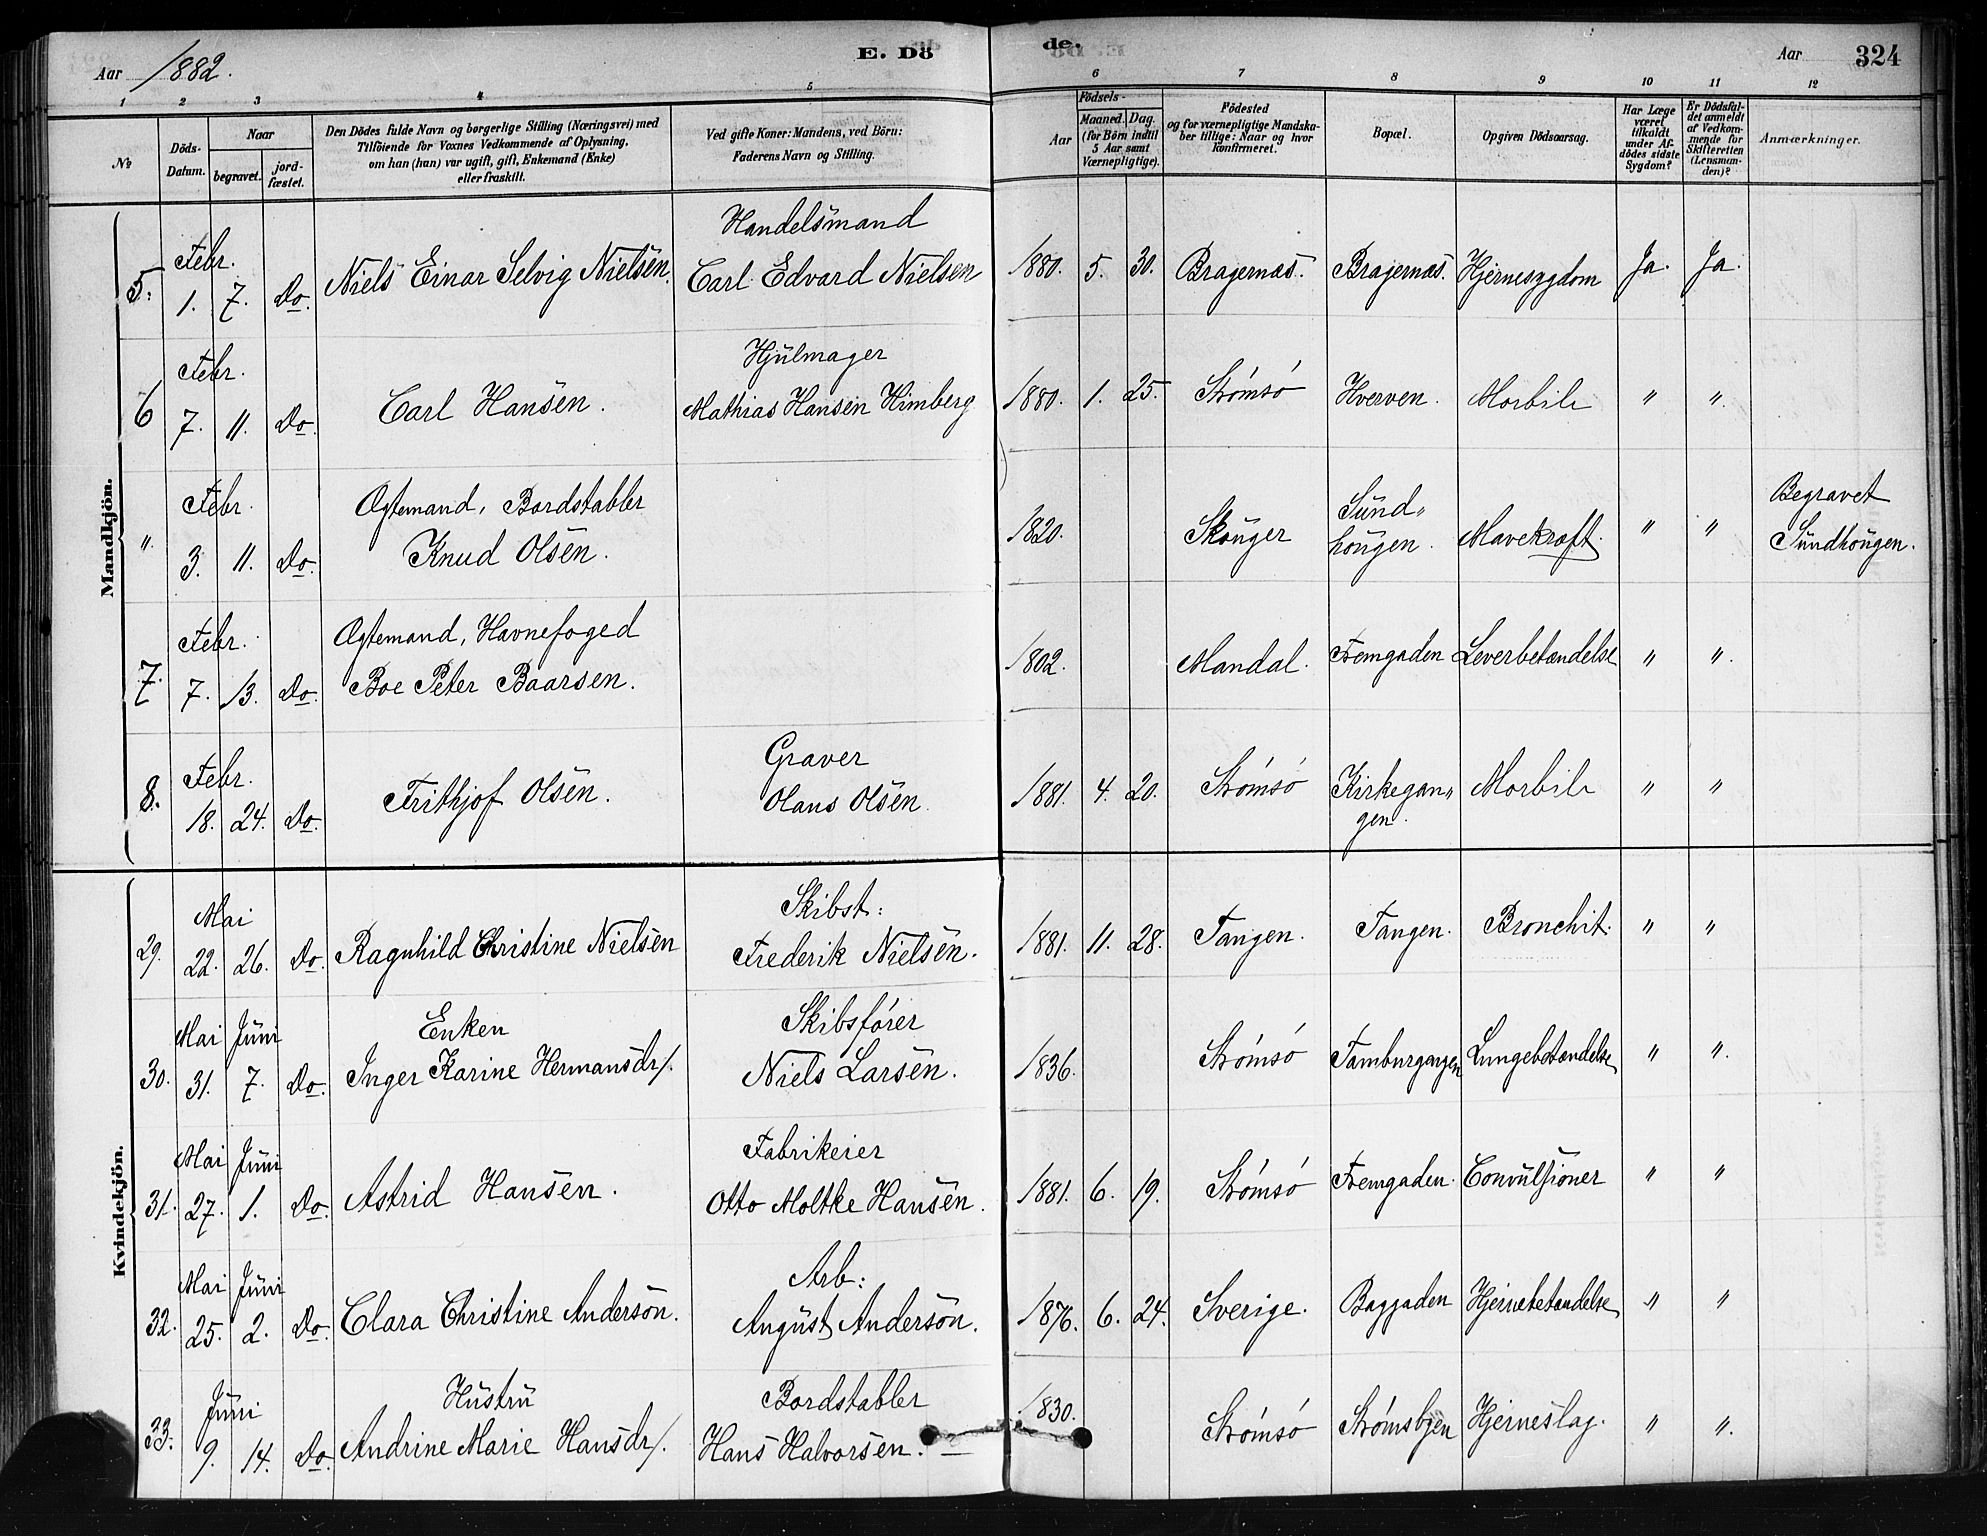 Aar 1882.
E. Dö
de.
Aar
324
1 2 3 4 5 6 7 8 9 10 11 12
No
Döds-Datum.
Naar
begravet.
jord-fæstet.
Den Dödes fulde Navn og borgerlige Stilling (Næringsvei) med
Tilföiende for Voxnes Vedkommende af Oplysning,
om han (hun) var ugift, gift, Enkemand (Enke)
eller fraskilt.
Ved gifte Koner: Mandens, ved Börn:
Faderens Navn og Stilling.
Födsels-
Aar
Maaned. Dag.
(for Börn indtil
5 Aar samt
Værnepligtige).
Födested
og for værnepligtige Mandska-
ber tillige: Naar og hvor
konfirmeret.
Bopæl.
Opgiven Dödsaarsag.
Har Læge
været
tilkaldt
under Af-
dödes sidste
Sygdom?
Er Dödsfal-
det anmeldt
af Vedkom-
mende for
Skifteretten
(Lensman-
den)?
Anmærkninger.
Mandkjön.
Febr. Handelsmand
5. 1. 7. Do. Niels Einar Selvig Nielsen. Carl Edvard Nielsen 1880. 5. 30. Bragernæs. Bragernæs. Hjernesygdom Ja. Ja.
Febr. Hjulmager
6 7. 11. Do. Carl Hansen. Mathias Hansen Himberg 1880. 1. 25. Strømsø Hverven. Morbili " "
Febr. Ægtemand, Bordstabler Sund- Begravet
" 3. 11. Do. Knud Olsen. 1820. Skouger hougen. Mavekræft. " " Sundhougen.
Febr. Ægtemand, Havnefoged
7. 7. 13. Do. Boe Peter Baarsen. 1802. Mandal. Fremgaden Leverbetændelse " "
Febr. Graver
8. 18. 24. Do. Frithjof Olsen. Olaus Olsen. 1881. 4. 20. Strømsø Kirkegan- Morbili " "
gen.
Kvindekjön.
Mai Skibst:
29. 22. 26. Do. Ragnhild Christine Nielsen Frederik Nielsen. 1881. 11. 28. Tangen. Tangen. Bronchit. " "
Mai Juni Enken Skibsfører
30. 31. 7. Do. Inger Karine Hermansdr/. Niels Larsen. 1836. Strømsø Tamburgangen Lungebetændelse " "
Mai Juni Fabrikeier
31. 27. 1. Do. Astrid Hansen. Otto Moltke Hansen. 1881. 6. 19. Strømsø Fremgaden. Convulsioner " "
Mai Juni Arb:
32. 25. 2. Do. Clara Christine Anderson. August Anderson. 1876. 6. 24. Sverige. Baggaden Hjernebetændelse " "
Juni Hustru Bordstabler
33. 9. 14. Do. Andrine Marie Hansdr/. Hans Halvorsen. 1830. Strømsø Strømsbyen Hjerneslag. " "